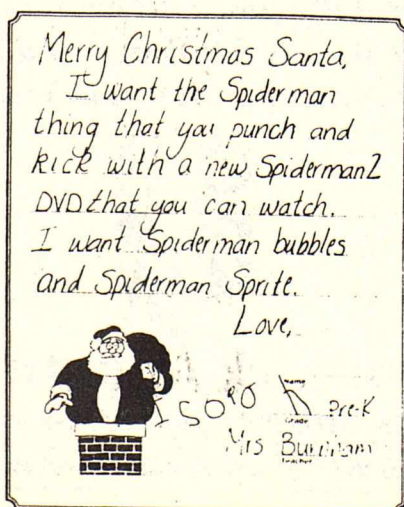 Merry Christmas Santa,
I want the Spiderman
thing that you punch and
kick with a new Spiderman 2
DVD that you can watch.
I want Spiderman bubbles
and Spiderman Sprite.
Love,
Name
Pre-K
Grade
Mrs Burnham
Teacher